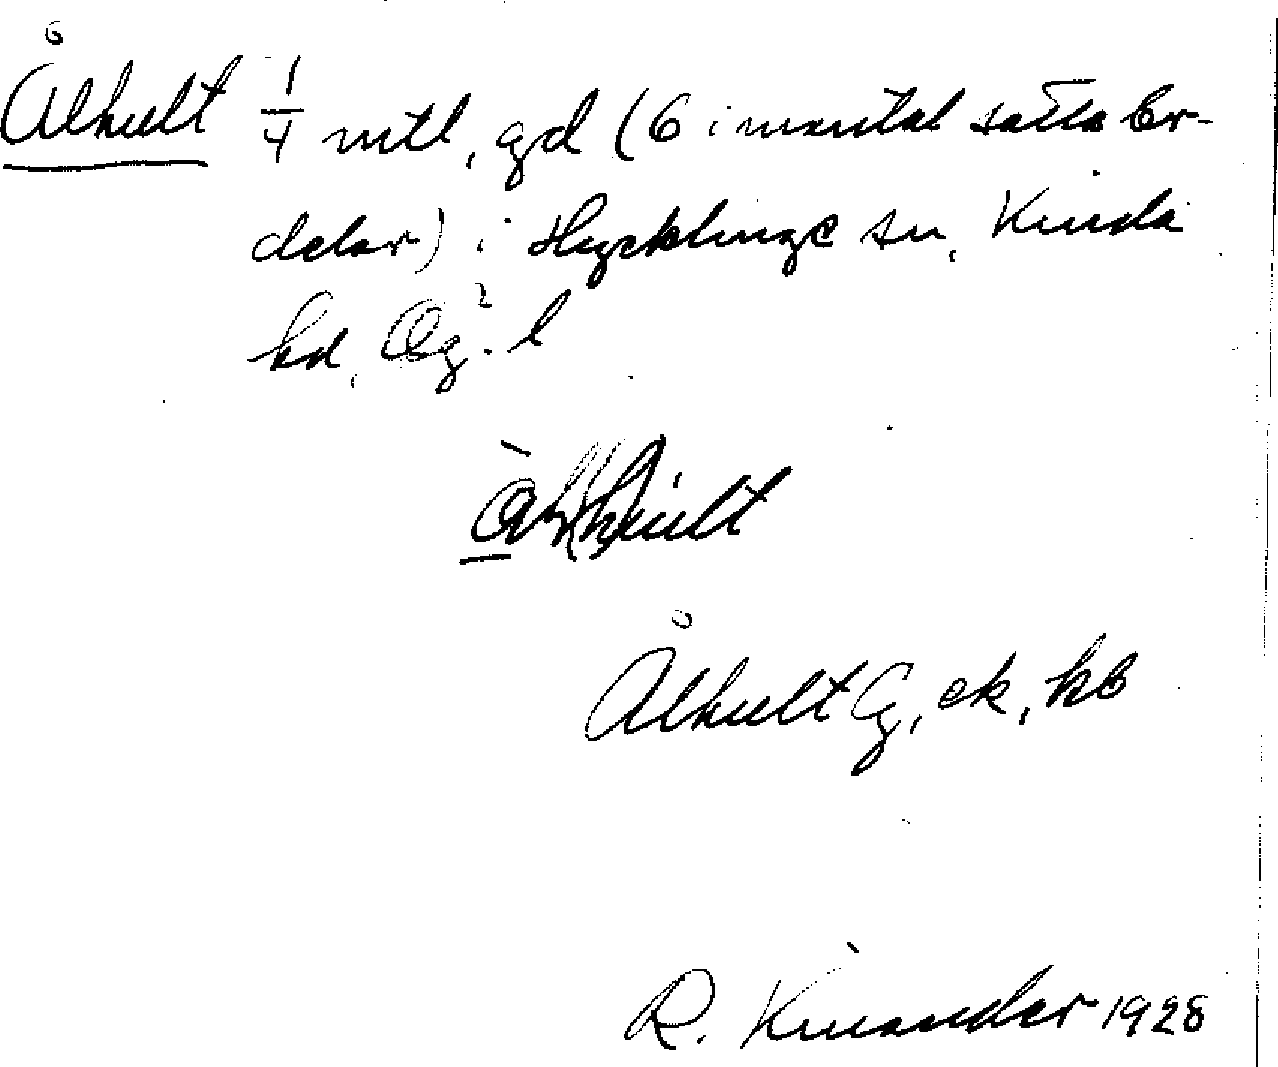 Ålhult 1/4 mtl, gd (6 i mantal satta br-
delar) i Hycklinge sn, Kinda
hd, Ög. l
Ålhult G, ek, kb
R. Kinander 1928